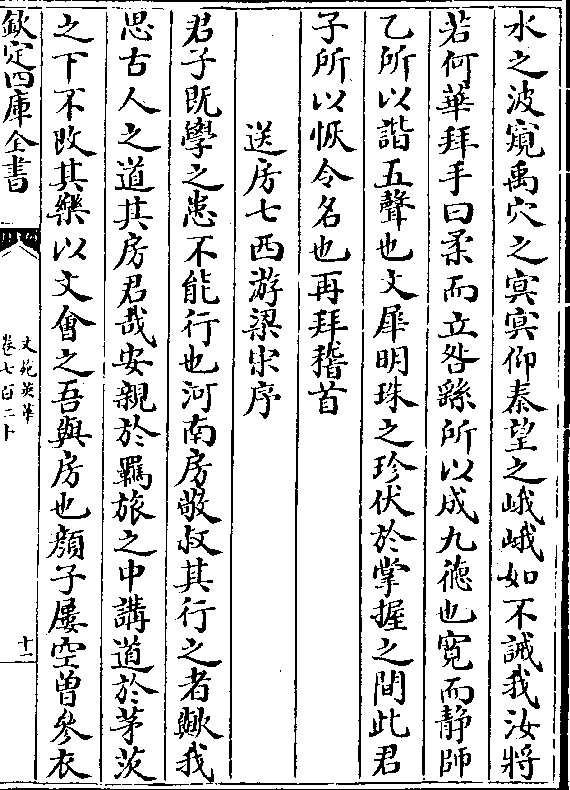 水之波窺禹穴之㝠㝠仰秦望之峨峨如不誡我汝將
若何華拜手曰柔而立咎繇所以成九德也寛而静師
乙所以諧五聲也文犀明珠之珍伏於掌握之間此君
子所以恢令名也再拜稽首
送房七西游梁宋序
君子既學之患不能行也河南房敬叔其行之者歟我
思古人之道其房君哉安親於羈旅之中講道於茅茨
之下不改其樂以文會之吾與房也顔子屢空曽參衣
欽定四庫全書
文苑英華
卷七百二十
十一